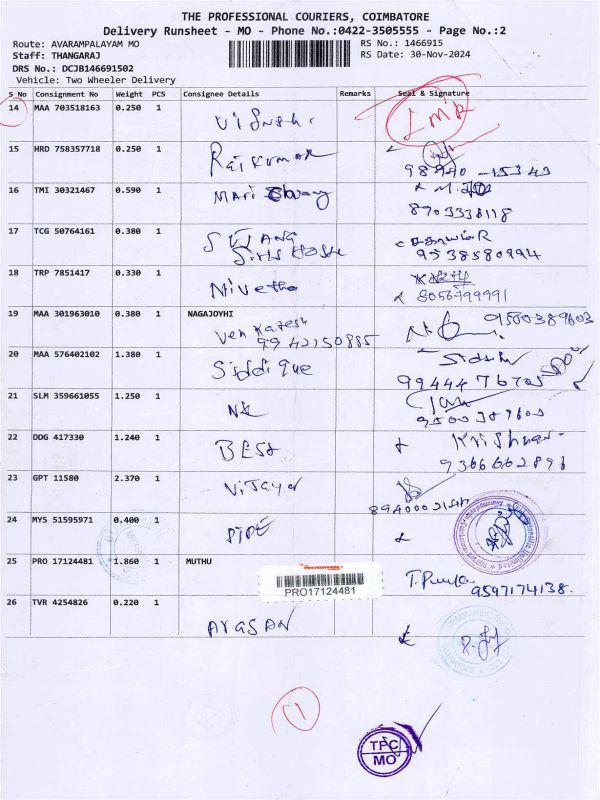 THE PROFESSIONAL COURIERS, COIMBATORE
Delivery Runsheet - MO - Phone No.:0422-3505555 - Page No.:2
Route: AVARAMPALAYAM MO RS No.: 1466915
Staff: THANGARAJ RS Date: 30-Nov-2024
DRS No.: DCJB146691502
Vehicle: Two Wheeler Delivery
S_No Consignment No Weight PCS Consignee Details Remarks Seal & Signature
14 MAA 703518163 0.250 1
15 HRD 758357718 0.250 1 Rajkumar
98940-15343
16 TMI 30321467 0.590 1 Mari
8903338118
17 TCG 50764161 0.380 1
9538580994
18 TRP 7851417 0.330 1 Nivetha
8056799991
19 MAA 301963010 0.380 1 NAGAJOYHI
Venkatesh 9500389603
9942150885
20 MAA 576402102 1.380 1 Siddique
9944476705
21 SLM 359661055 1.250 1
22 DDG 417330 1.240 1 BESt Krishnan
9366662891
23 GPT 11580 2.370 1 Vijaya
24 MYS 51595971 0.400 1 PIPE
25 PRO 17124481 1.860 1 MUTHU
PRO17124481
9597174138.
26 TVR 4254826 0.220 1 ARASAN
TPC
MO